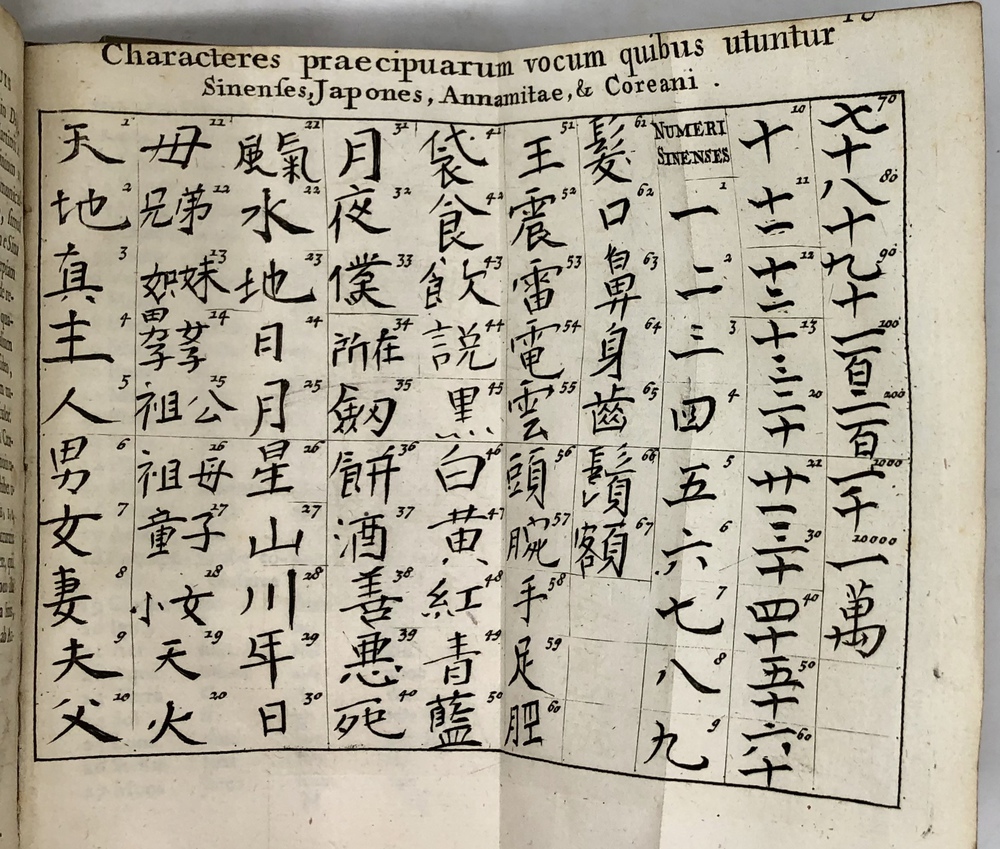 Characteres praecipuarum vocum quibus utuntur
Sinenſes, Japones, Annamitae, & Coreani .
天 1
地 2
真 3
主 4
人 5
男 6
女 7
妻 8
夫 9
父 10
母 11
兄弟 12
妹 13
男 女 14
祖公 15
祖母 16
童子 17
小女 18
天 19
火 20
風氣 21
水 22
地 23
日 24
月 25
星 26
山 27
川 28
年 29
日 30
月 31
夜 32
僕 33
所在 34
劒 35
餅 36
酒 37
善 38
悪 39
死 40
袋 41
食 42
飲 43
説 44
黒 45
白 46
黄 47
紅 48
青 49
藍 50
王 51
震 52
雷 53
電 54
雲 55
頭 56
腕 57
手 58
足 59
肥 60
髮 61
口 62
鼻 63
身 64
齒 65
鬚 66
額 67
NUMERI
SINENSES
一 1
二 2
三 3
四 4
五 5
六 6
七 7
八 8
九 9
十 10
十一 11
十二 12
十三 13
二十 20
廿一 21
三十 30
四十 40
五十 50
六十 60
七十 70
八十 80
九十 90
一百 100
二百 200
一千 1000
一萬 10000